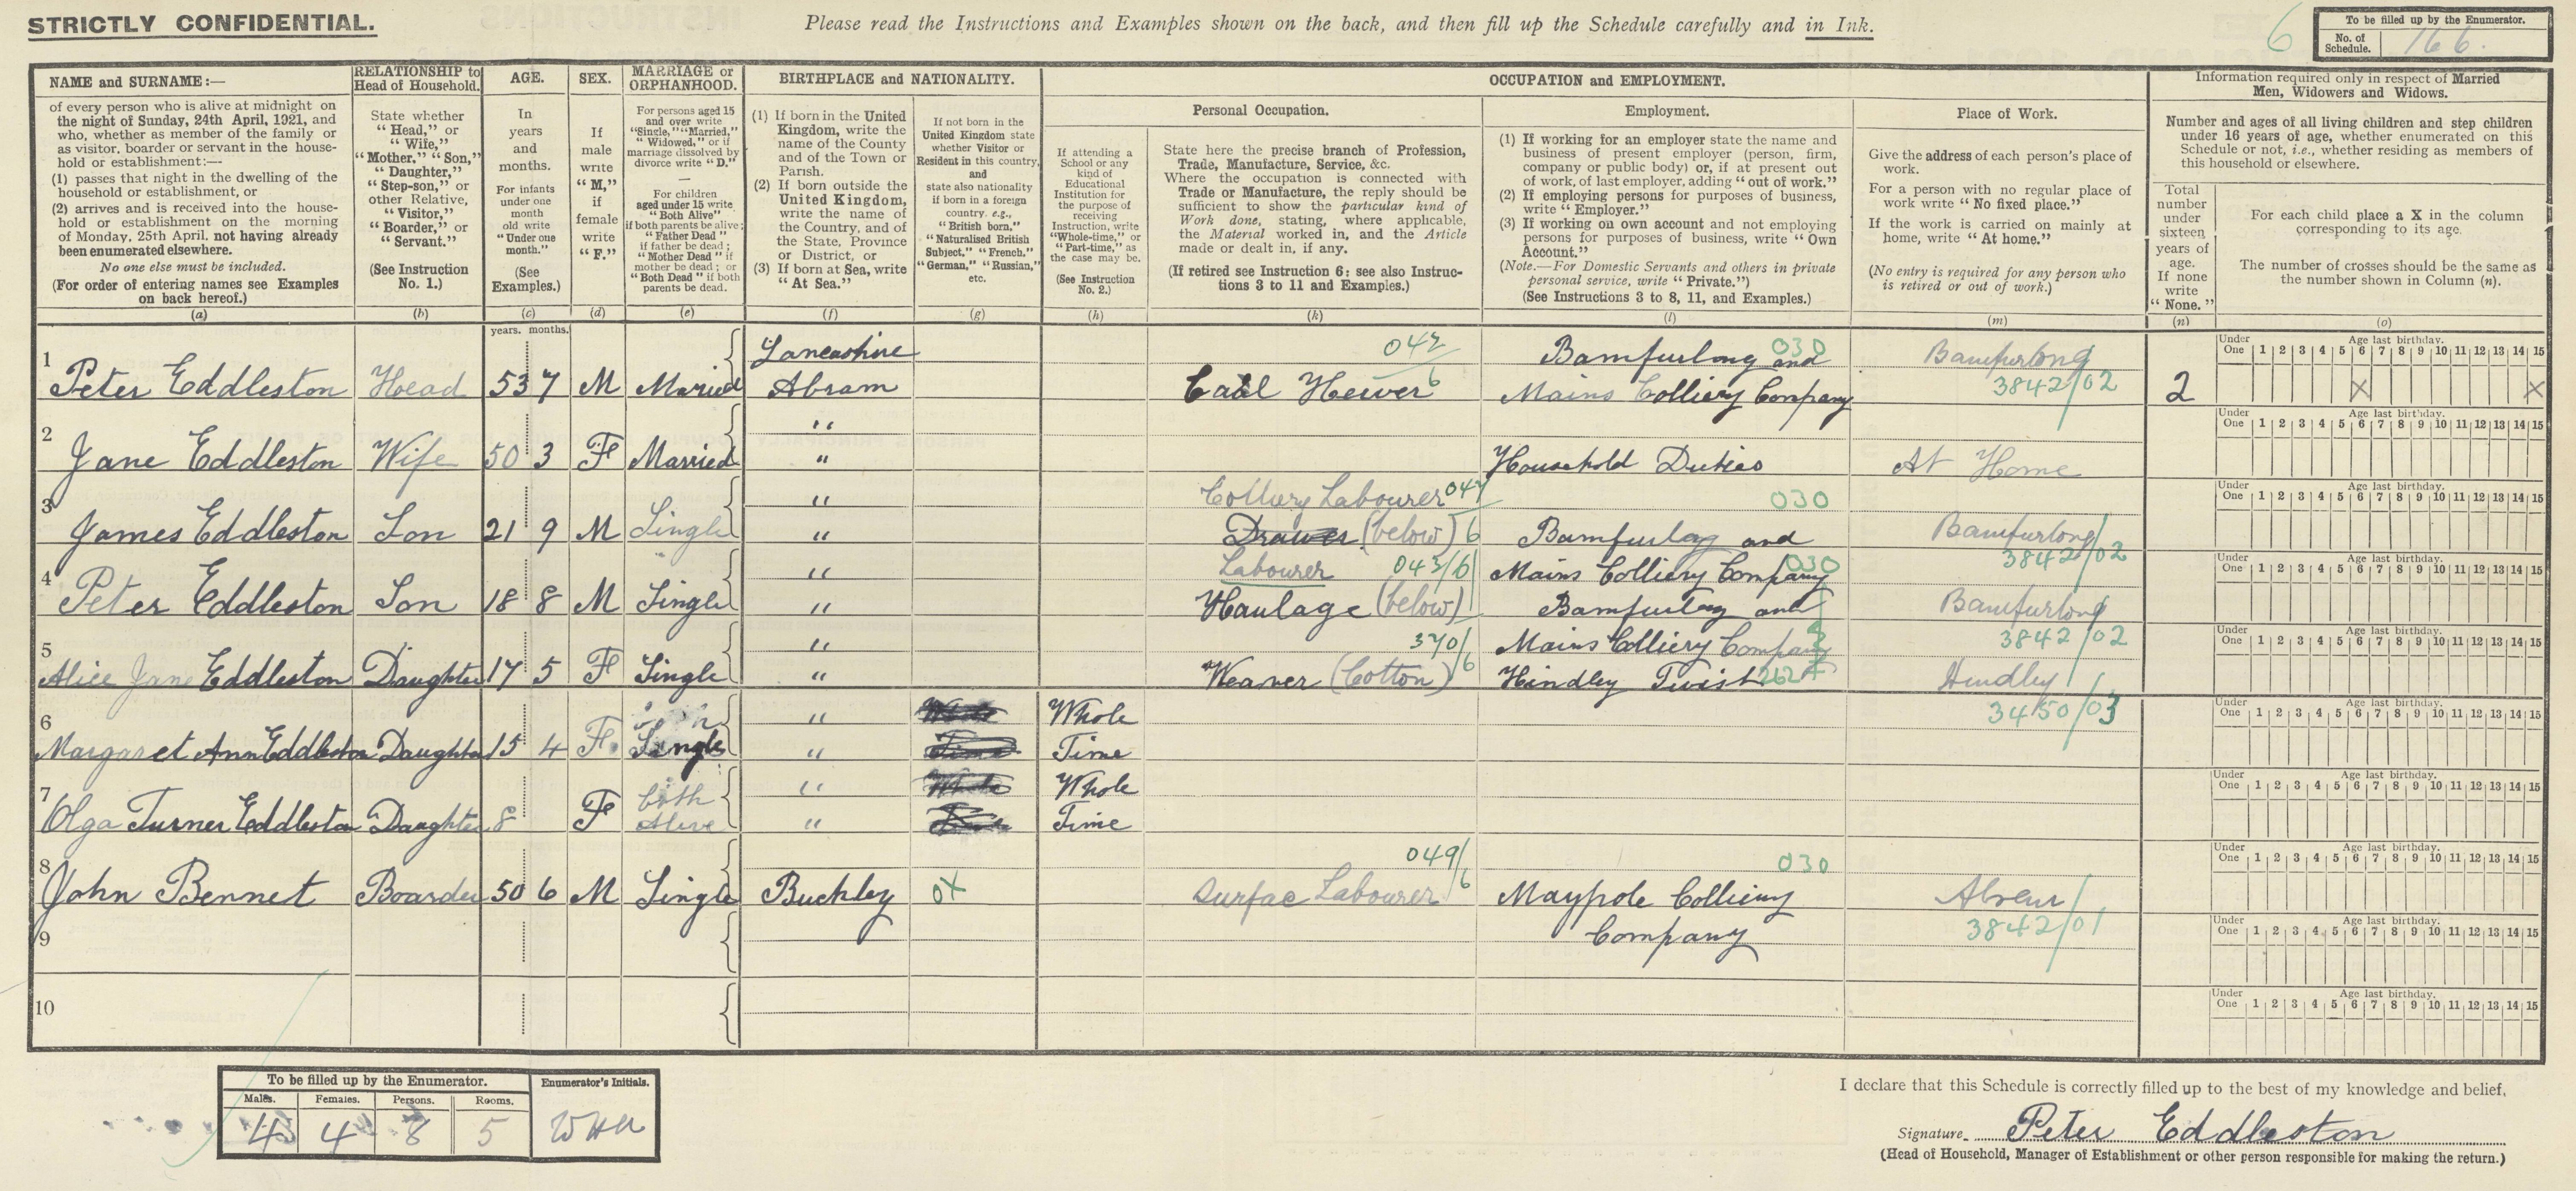 STRICTLY CONFIDENTIAL.
Please read the Instructions and Examples shown on the back, and then fill up the Schedule carefully and in Ink.
6
To be filled up by the Enumerator.
No. of Schedule. 166.
NAME and SURNAME:—
of every person who is alive at midnight on
the night of Sunday, 24th April, 1921, and
who, whether as member of the family or
as visitor, boarder or servant in the house-
hold or establishment:—
(1) passes that night in the dwelling of the
household or establishment, or
(2) arrives and is received into the house-
hold or establishment on the morning
of Monday, 25th April, not having already
been enumerated elsewhere.
No one else must be included.
(For order of entering names see Examples
on back hereof.)
(a)
RELATIONSHIP to
Head of Household.
State whether
"Head," or
"Wife,"
"Mother," "Son,"
"Daughter,"
"Step-son," or
other Relative,
"Visitor,"
"Boarder," or
"Servant."
(See Instruction
No. 1.)
(b)
AGE.
In
years
and
months.
For infants
under one
month
old write
"Under one
month."
(See
Examples.)
(c)
SEX.
If
male
write
"M,"
if
female
write
"F."
(d)
MARRIAGE or
ORPHANHOOD.
For persons aged 15
and over write
"Single," "Married,"
"Widowed," or if
marriage dissolved by
divorce write "D."
—
For children
aged under 15 write
"Both Alive"
if both parents be alive;
"Father Dead"
if father be dead;
"Mother Dead" if
mother be dead; or
"Both Dead" if both
parents be dead.
(e)
BIRTHPLACE and NATIONALITY.
(1) If born in the United
Kingdom, write the
name of the County
and of the Town or
Parish.
(2) If born outside the
United Kingdom,
write the name of
the Country, and of
the State, Province
or District, or
(3) If born at Sea, write
"At Sea."
(f)
If not born in the
United Kingdom state
whether Visitor or
Resident in this country,
and
state also nationality
if born in a foreign
country. e.g.,
"British born,"
"Naturalised British
Subject," "French,"
"German," "Russian,"
etc.
(g)
OCCUPATION and EMPLOYMENT.
Personal Occupation.
If attending a
School or any
kind of
Educational
Institution for
the purpose of
receiving
Instruction, write
"Whole-time," or
"Part-time," as
the case may be.
(See Instruction
No. 2.)
(h)
State here the precise branch of Profession,
Trade, Manufacture, Service, &c.
Where the occupation is connected with
Trade or Manufacture, the reply should be
sufficient to show the particular kind of
Work done, stating, where applicable,
the Material worked in, and the Article
made or dealt in, if any.
(If retired see Instruction 6: see also Instruc-
tions 3 to 11 and Examples.)
(k)
Employment.
(1) If working for an employer state the name and
business of present employer (person, firm,
company or public body) or, if at present out
of work, of last employer, adding "out of work."
(2) If employing persons for purposes of business,
write "Employer."
(3) If working on own account and not employing
persons for purposes of business, write "Own
Account."
(Note.—For Domestic Servants and others in private
personal service, write "Private.")
(See Instructions 3 to 8, 11, and Examples.)
(l)
Place of Work.
Give the address of each person's place of
work.
For a person with no regular place of
work write "No fixed place."
If the work is carried on mainly at
home, write "At home."
(No entry is required for any person who
is retired or out of work.)
(m)
Information required only in respect of Married
Men, Widowers and Widows.
Number and ages of all living children and step children
under 16 years of age, whether enumerated on this
Schedule or not, i.e., whether residing as members of
this household or elsewhere.
Total
number
under
sixteen
years of
age.
If none
write
"None."
(n)
For each child place a X in the column
corresponding to its age.
The number of crosses should be the same as
the number shown in Column (n).
(o)
years. months.
Under One Age last birthday. 1 2 3 4 5 6 7 8 9 10 11 12 13 14 15
1 Lancashire 042/6 Bamfurlong and 030 Bamfurlong
Peter Eddleston Head 53 7 M Married Abram Coal Hewer Mains Colliery Company 3842/02 2 X X
Under One Age last birthday. 1 2 3 4 5 6 7 8 9 10 11 12 13 14 15
2 "
Jane Eddleston Wife 50 3 F Married " Household Duties At Home
Under One Age last birthday. 1 2 3 4 5 6 7 8 9 10 11 12 13 14 15
3 " Colliery Labourer 047/6 030
James Eddleston Son 21 9 M Single " Drawer (below) Bamfurlong and Bamfurlong
3842/02
Under One Age last birthday. 1 2 3 4 5 6 7 8 9 10 11 12 13 14 15
4 " Labourer 043/6 Mains Colliery Company 030
Peter Eddleston Son 18 8 M Single " Haulage (below) Bamfurlong and Bamfurlong
3842/02
Under One Age last birthday. 1 2 3 4 5 6 7 8 9 10 11 12 13 14 15
5 " 370/6 Mains Colliery Company
Alice Jane Eddleston Daughter 17 5 F Single " Weaver (Cotton) Hindley Twist 262 Hindley
3450/03
Under One Age last birthday. 1 2 3 4 5 6 7 8 9 10 11 12 13 14 15
6 " Whole Whole
Margaret Ann Eddleston Daughter 15 4 F. Single " Time Time
Under One Age last birthday. 1 2 3 4 5 6 7 8 9 10 11 12 13 14 15
7 both " Whole Whole
Olga Turner Eddleston Daughter 8 F Alive " Time Time
Under One Age last birthday. 1 2 3 4 5 6 7 8 9 10 11 12 13 14 15
8 049/6 030
John Bennet Boarder 50 6 M Single Buckley Surfac Labourer Maypole Colliery Abram
Company 3842/01
9
Under One Age last birthday. 1 2 3 4 5 6 7 8 9 10 11 12 13 14 15
10
Under One Age last birthday. 1 2 3 4 5 6 7 8 9 10 11 12 13 14 15
To be filled up by the Enumerator.
Males. Females. Persons. Rooms.
4 4 8 5
Enumerator's Initials.
I declare that this Schedule is correctly filled up to the best of my knowledge and belief.
Signature Peter Eddleston
(Head of Household, Manager of Establishment or other person responsible for making the return.)